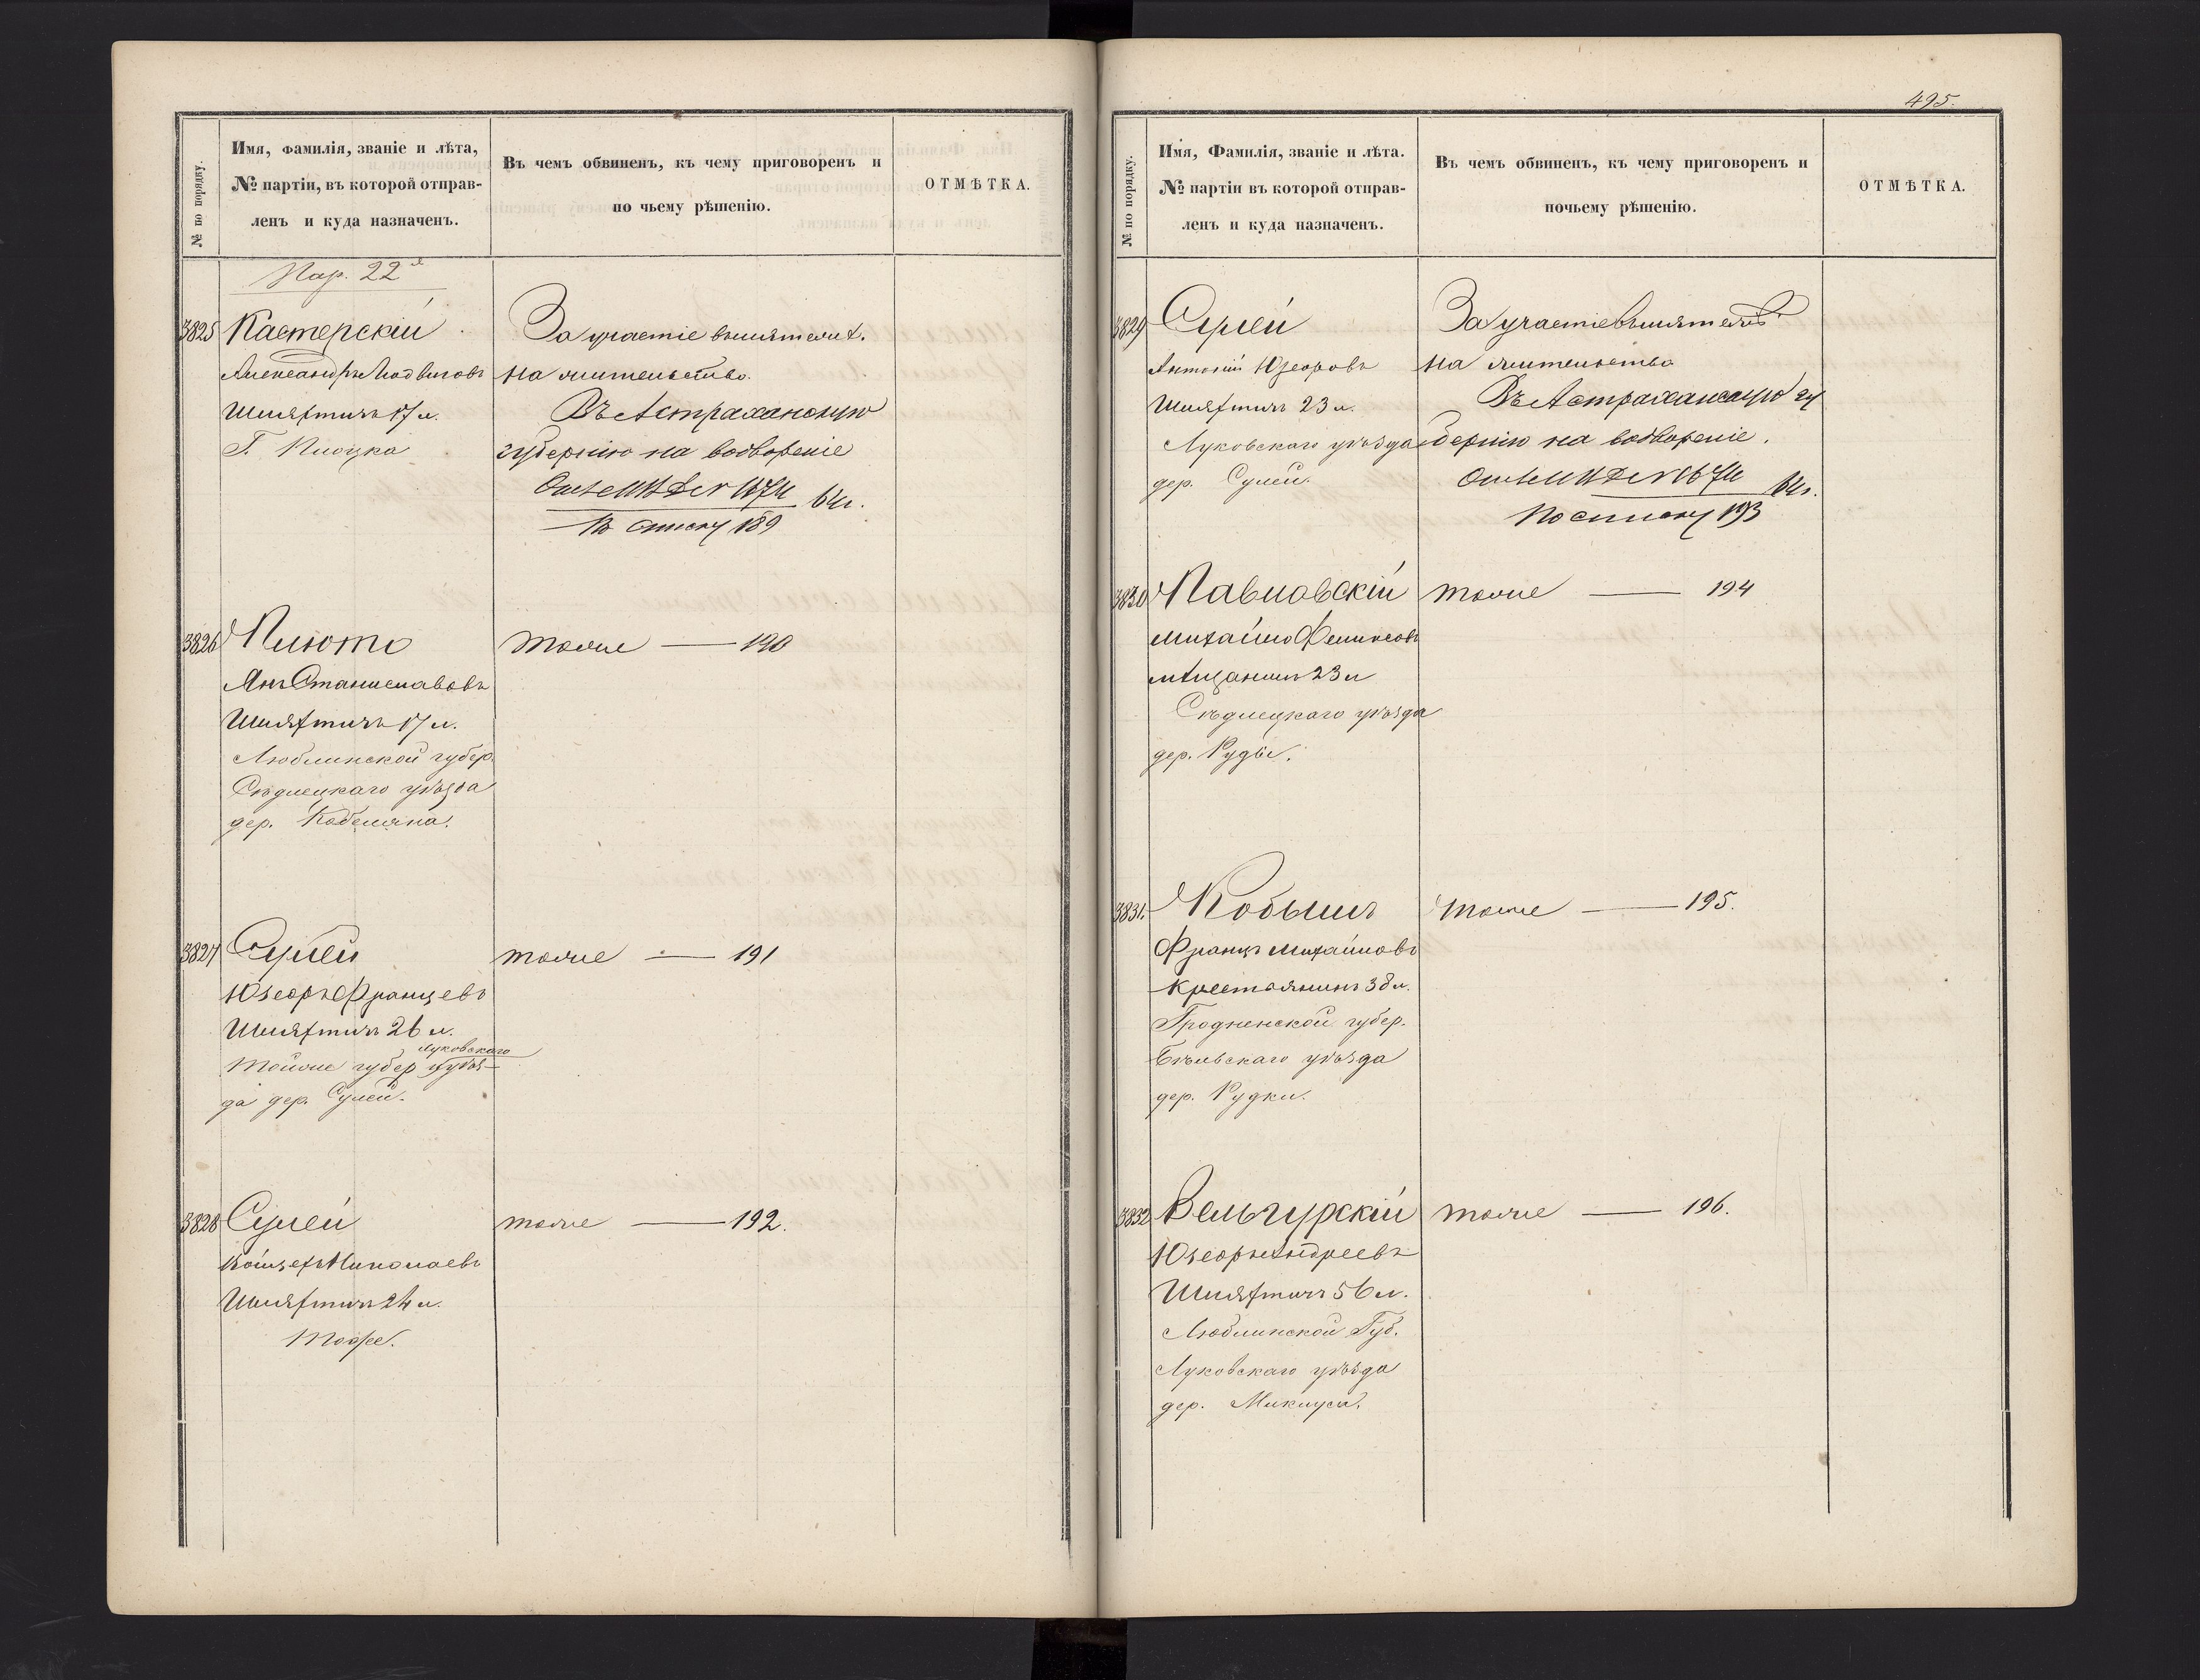 № по порядку.
Имя, фамилія, званіе и лѣта,
№ партіи, въ которой отправ-
ленъ и куда назначенъ.
Въ чемъ обвиненъ, къ чему приговоренъ и
по чьему рѣшенію.
ОТМѢТКА.
Пар. 22я
3825
Кастерскій
Александръ Людвиговъ
Шляхтичъ 17 л.
Г. Плоцка
За участіе въ мятежѣ.
на жительство.
Въ Астраханскую
губернію на водвореніе
64 г.
По списку 189
3826
Плюто
Янъ Станиславовъ
Шляхтичъ 17 л.
Люблинской губер.
Сѣдлецкаго уѣзда
дер. Кобеляна.
тоже — 190
3827
Сулей
Юзефъ Францевъ
Шляхтичъ 26 л.
Луковскаго
тойже губер уѣз-
да дер. Сулей.
тоже — 191
3828
Сулей
Войцехъ Николаевъ
Шляхтичъ 24 л.
тоже.
тоже — 192.
495.
№ по порядку.
Имя, Фамилія, званіе и лѣта.
№ партіи въ которой отправ-
ленъ и куда назначенъ.
Въ чемъ обвиненъ, къ чему приговоренъ и
почьему рѣшенію.
ОТМѢТКА.
3829
Сулей
Антоній Юзефовъ
Шляхтичъ 23 л.
Луковскаго уѣзда
дер. Сулей.
За участіе въ мятежѣ
на жительство
Въ Астраханскую гу
бернію на водвореніе.
64 г.
По списку 193
3830
Павловскій
Михайло Феликсовъ
мѣщанинъ 23 л
Сѣдлецкаго уѣзда
дер. Руды.
тоже — 194
3831.
Кобылъ
Францъ Михайловъ
крестьянинъ 38 л.
Гродненской губер.
Бѣльскаго уѣзда
дер. Рудки.
тоже — 195.
3832
Вельгурскій
Юзефъ Андреевъ
Шляхтичъ 56 л.
Люблинской Губ.
Луковскаго уѣзда
дер. Миклусы.
тоже — 196.